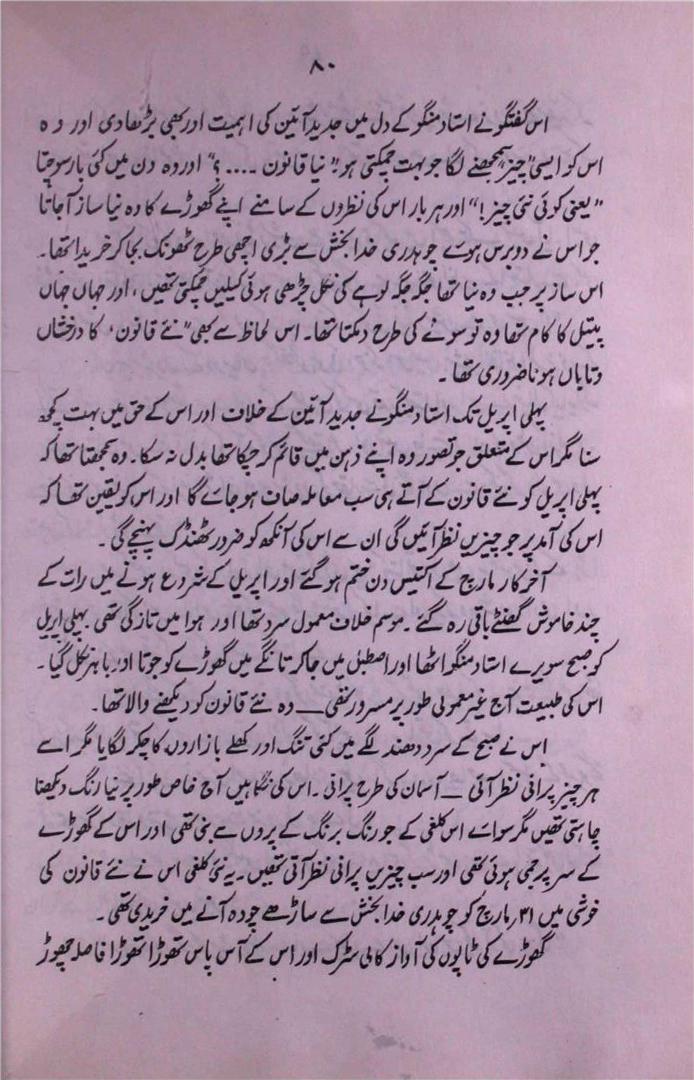 ۸۰
اس گفتگو نے استاد منگو کے دل میں جدید آئین کی اہمیت اور بھی بڑھا دی اور وہ
اس کو ایسی "چیز" سمجھنے لگا جو بہت چمکتی ہو۔ "نیا قانون ....؟" اور وہ دن میں کئی بار سوچتا
"یعنی کوئی نئی چیز!" اور ہر بار اس کی نظروں کے سامنے اپنے گھوڑے کا وہ نیا ساز آجاتا
جو اس نے دو برس ہوے چوہدری خدا بخش سے بڑی اچھی طرح ٹھونک بجا کر خریدا تھا۔
اس ساز پر جب وہ نیا تھا جگہ جگہ لوہے کی نکل چڑھی ہوئی کیلیں چمکتی تھیں، اور جہاں جہاں
پیتل کا کام تھا وہ تو سونے کی طرح دمکتا تھا۔ اس لحاظ سے بھی "نئے قانون" کا درخشاں
وتاباں ہونا ضروری تھا۔
پہلی اپریل تک استاد منگو نے جدید آئین کے خلاف اور اس کے حق میں بہت کچھ
سنا مگر اس کے متعلق جو تصور وہ اپنے ذہن میں قائم کر چکا تھا بدل نہ سکا۔ وہ سمجھتا تھا کہ
پہلی اپریل کو نئے قانون کے آتے ہی سب معاملہ صاف ہو جاے گا اور اس کو یقین تھا کہ
اس کی آمد پر جو چیزیں نظر آئیں گی ان سے اس کی آنکھ کو ضرور ٹھنڈک پہنچے گی۔
آخر کار مارچ کے اکتیس دن ختم ہو گئے اور اپریل کے شروع ہونے میں رات کے
چند خاموش گھنٹے باقی رہ گئے۔ موسم خلاف معمول سرد تھا اور ہوا میں تازگی تھی۔ پہلی اپریل
کو صبح سویرے استاد منگو اٹھا اور اصطبل میں جا کر تانگے میں گھوڑے کو جوتا اور باہر نکل گیا۔
اس کی طبیعت آج غیر معمولی طور پر مسرور تھی — وہ نئے قانون کو دیکھنے والا تھا۔
اس نے صبح کے سرد دھندلکے میں کئی تنگ اور کھلے بازاروں کا چکر لگایا مگر اسے
ہر چیز پرانی نظر آئی — آسمان کی طرح پرانی۔ اس کی نگاہیں آج خاص طور پر نیا رنگ دیکھنا
چاہتی تھیں مگر سواے اس کلغی کے جو رنگ برنگ کے پروں سے بنی تھی اور اس کے گھوڑے
کے سر پر جمی ہوئی تھی اور سب چیزیں پرانی نظر آتی تھیں۔ یہ نئی کلغی اس نے نئے قانون کی
خوشی میں ۳۱ مارچ کو چوہدری خدا بخش سے ساڑھے چودہ آنے میں خریدی تھی۔
گھوڑے کی ٹاپوں کی آواز کالی سڑک اور اس کے آس پاس تھوڑا تھوڑا فاصلہ چھوڑ